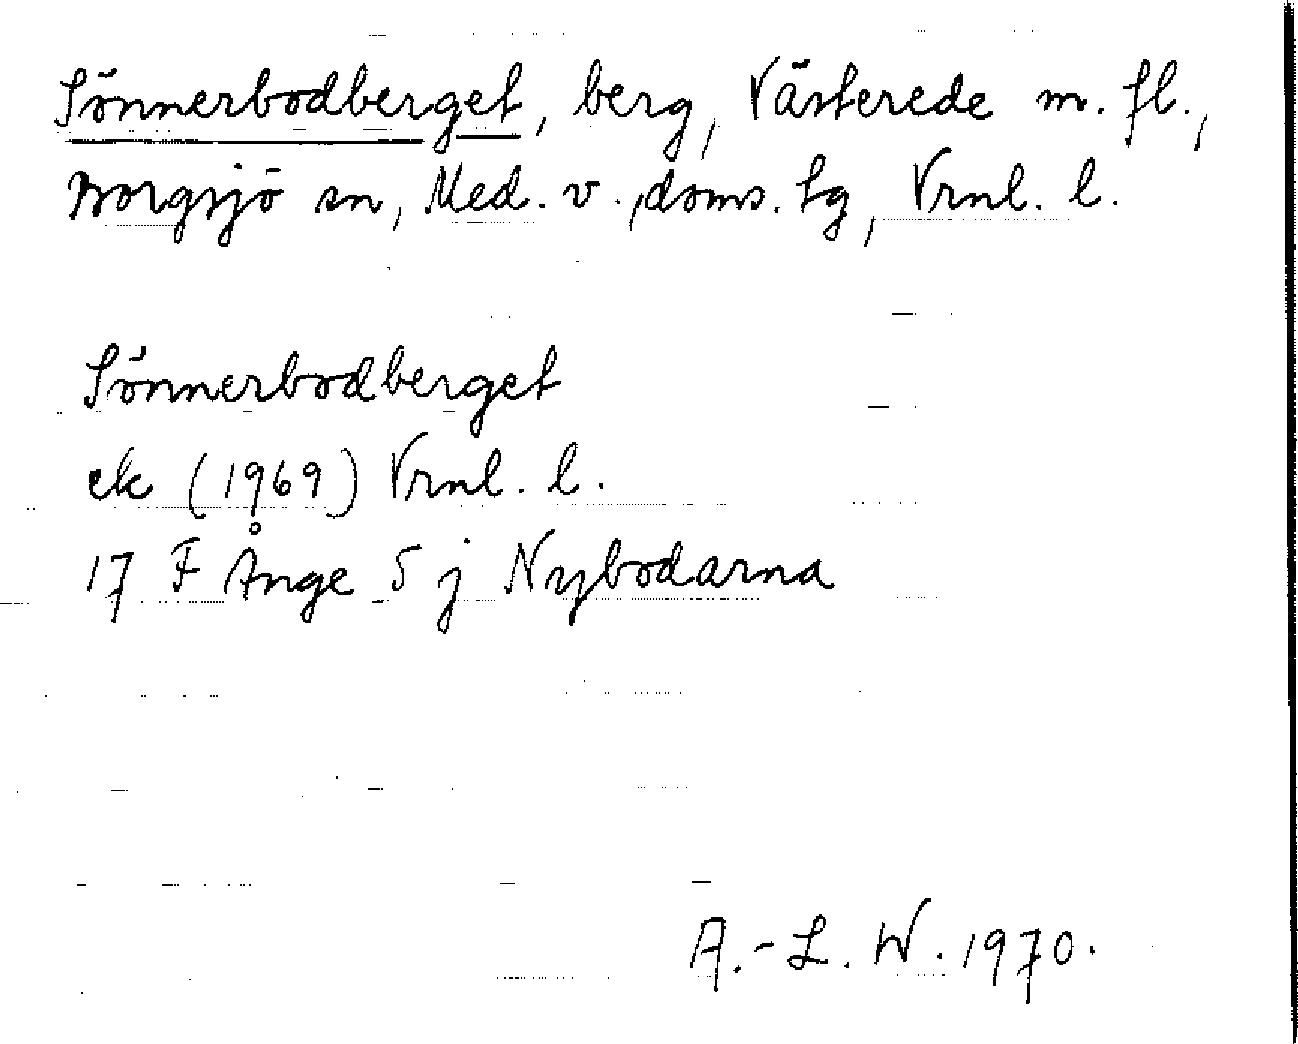 Sönnerbodberget, berg, Västerede m. fl.,
Borgsjö sn, Med. v. doms. tg, Vrnl. l.
Sönnerbodberget
ek (1969) Vrnl. l.
17 F Ånge 5 j Nybodarna
A.-L. W. 1970.